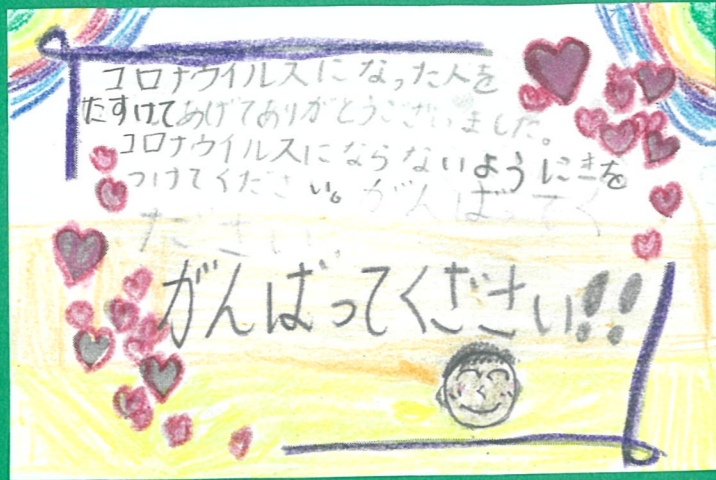 コロナウイルスになった人を
たすけてあげてありがとうございました。
コロナウイルスにならないように気を
つけてください。がんばってく
ださい。
がんばってください!!